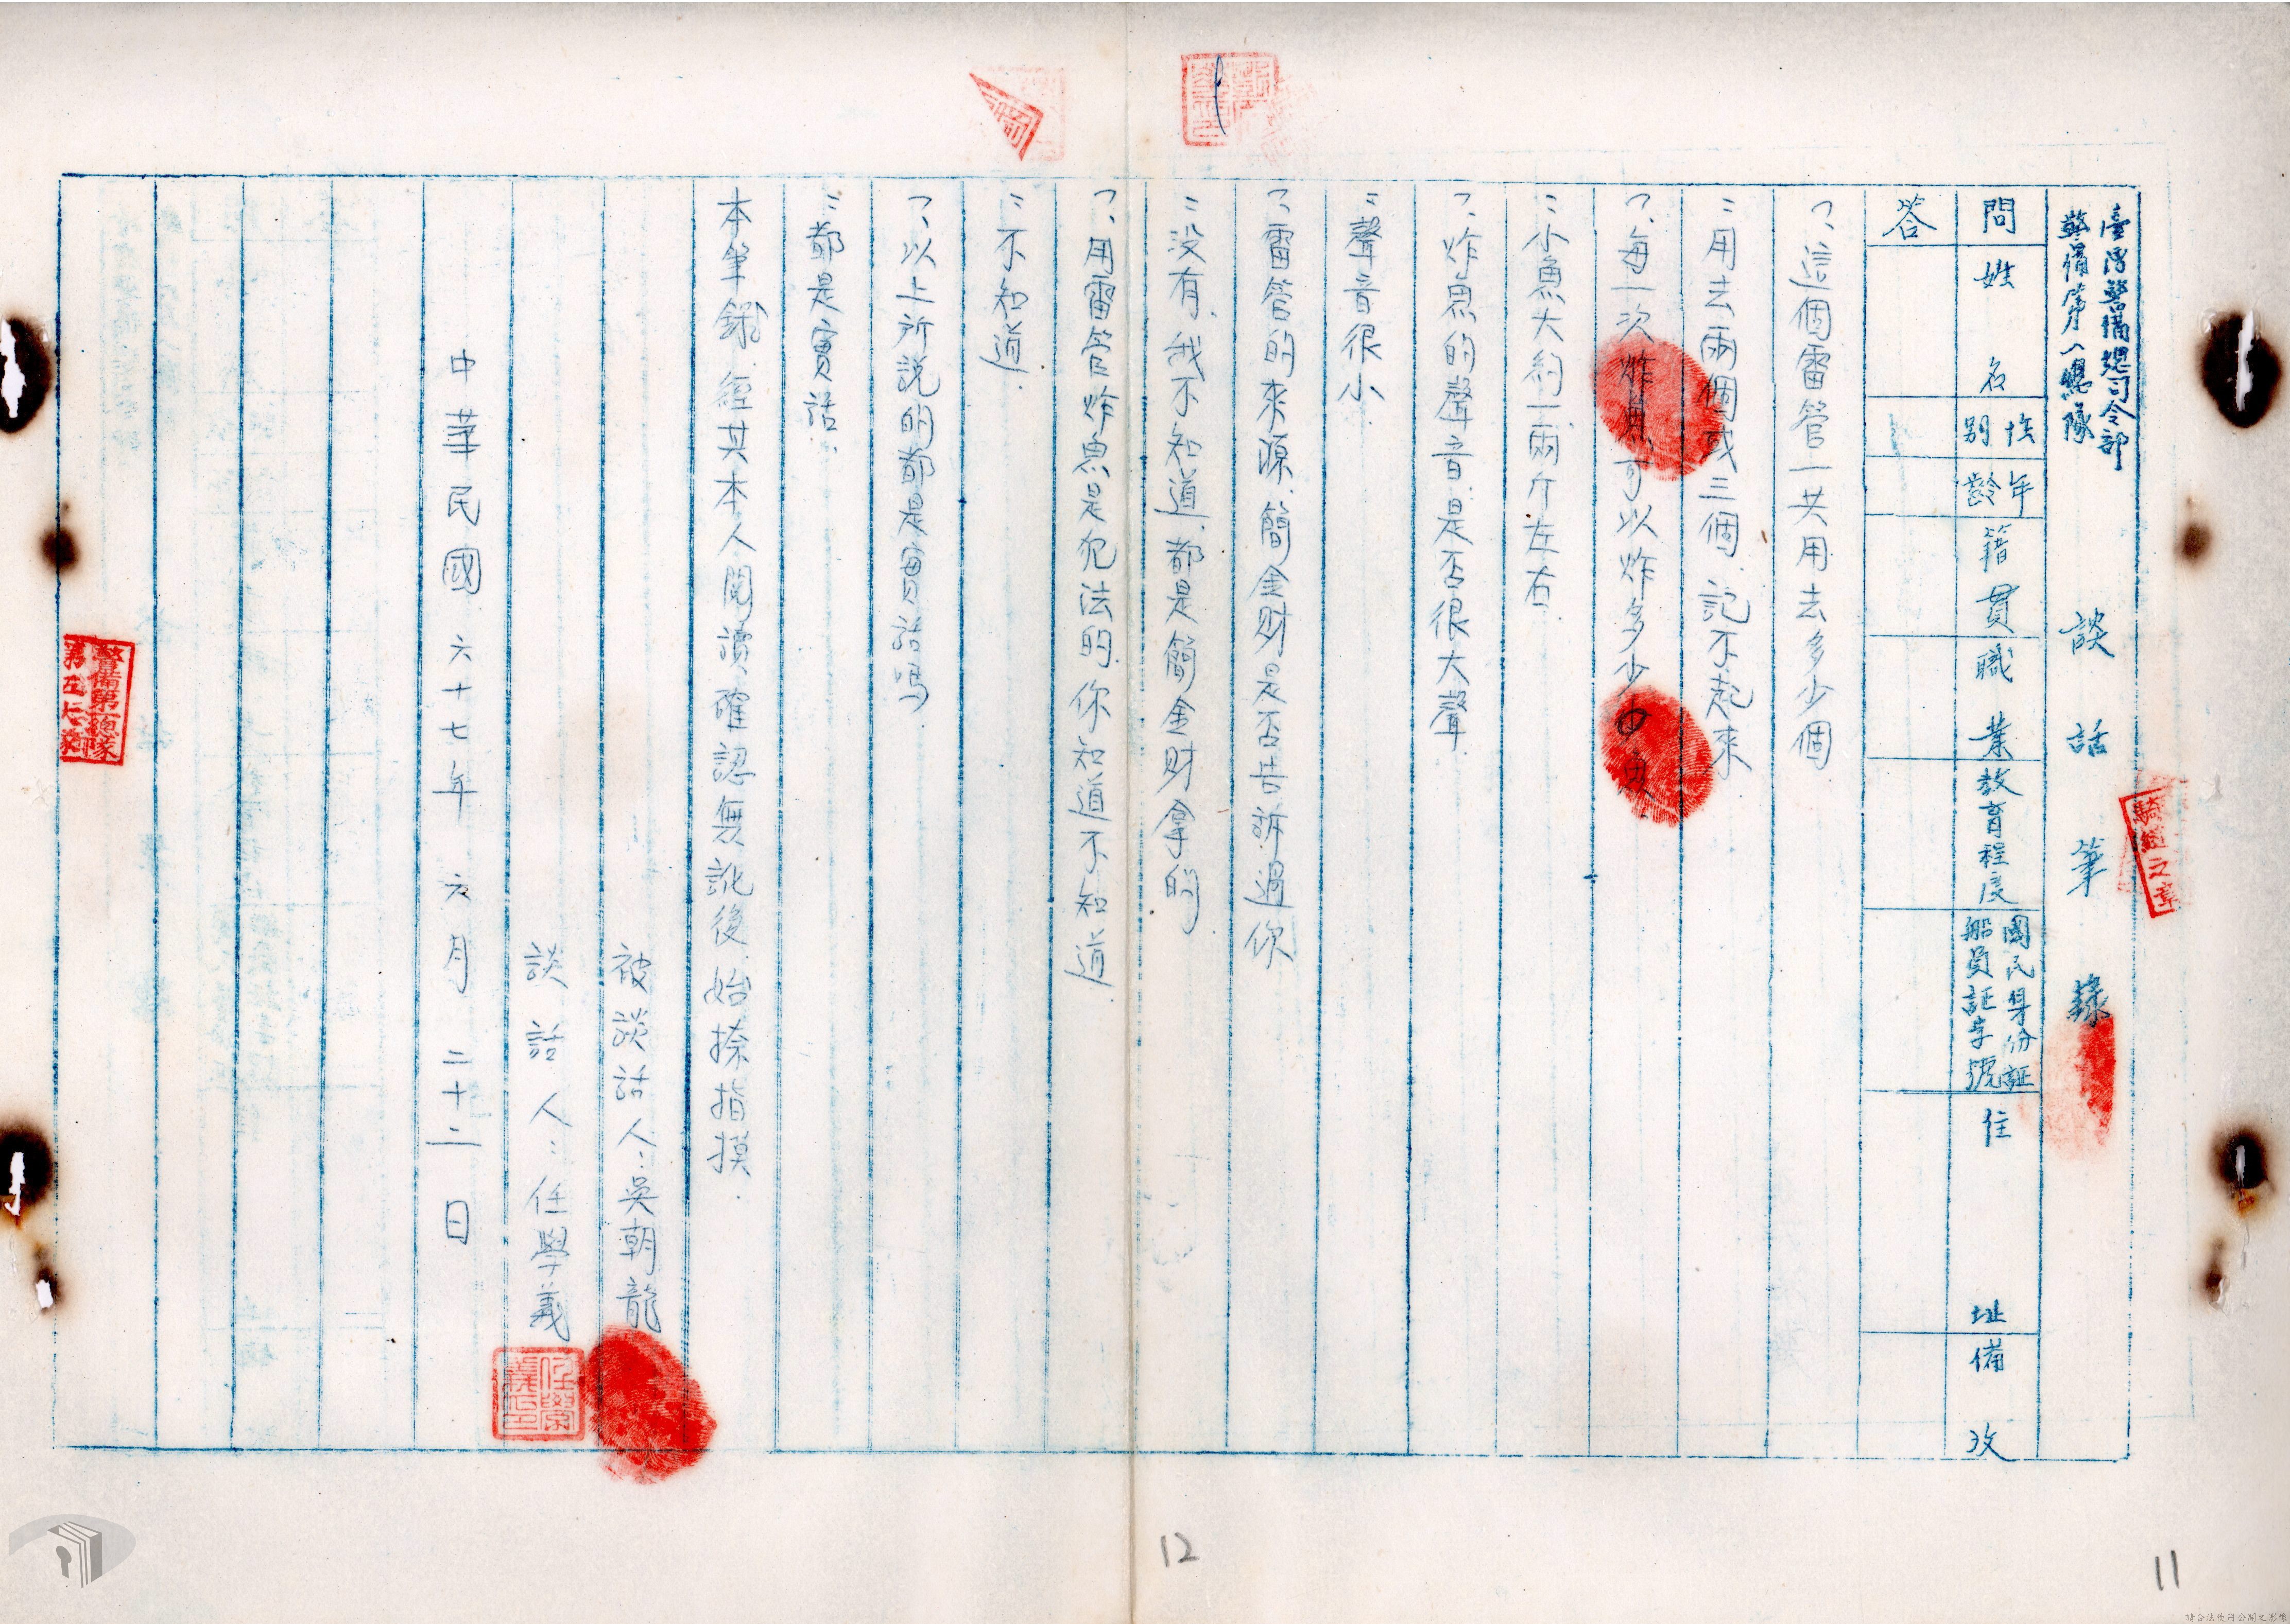 臺灣警備總司令部
警備第一總隊
談話筆錄
問
姓名
性別
年齡
籍貫
職業
教育程度
國民身份証
船員証字號
住址
備攷
答
㇇、這個雷管一共用去多少個.
:用去兩個或三個.記不起來.
㇇、每一次炸魚.可以炸多少小魚.
:小魚大約一兩斤左右.
㇇.炸魚的聲音.是否很大聲.
:聲音很小.
㇇、雷管的來源.簡金財是否告訴過你
:没有.我不知道.都是簡金財拿的
㇇、用雷管炸魚是犯法的.你知道不知道.
:不知道.
㇇、以上所説的都是實話嗎.
:都是實話.
本筆錄.經其本人閱讀.確認無訛後.始捺指摸.
被談話人:吳朝龍
談話人:任學義
任學義印
中華民國六十七年六月二十二日
警備第一總隊
騎縫之章
12
11
請合法使用公開之影像